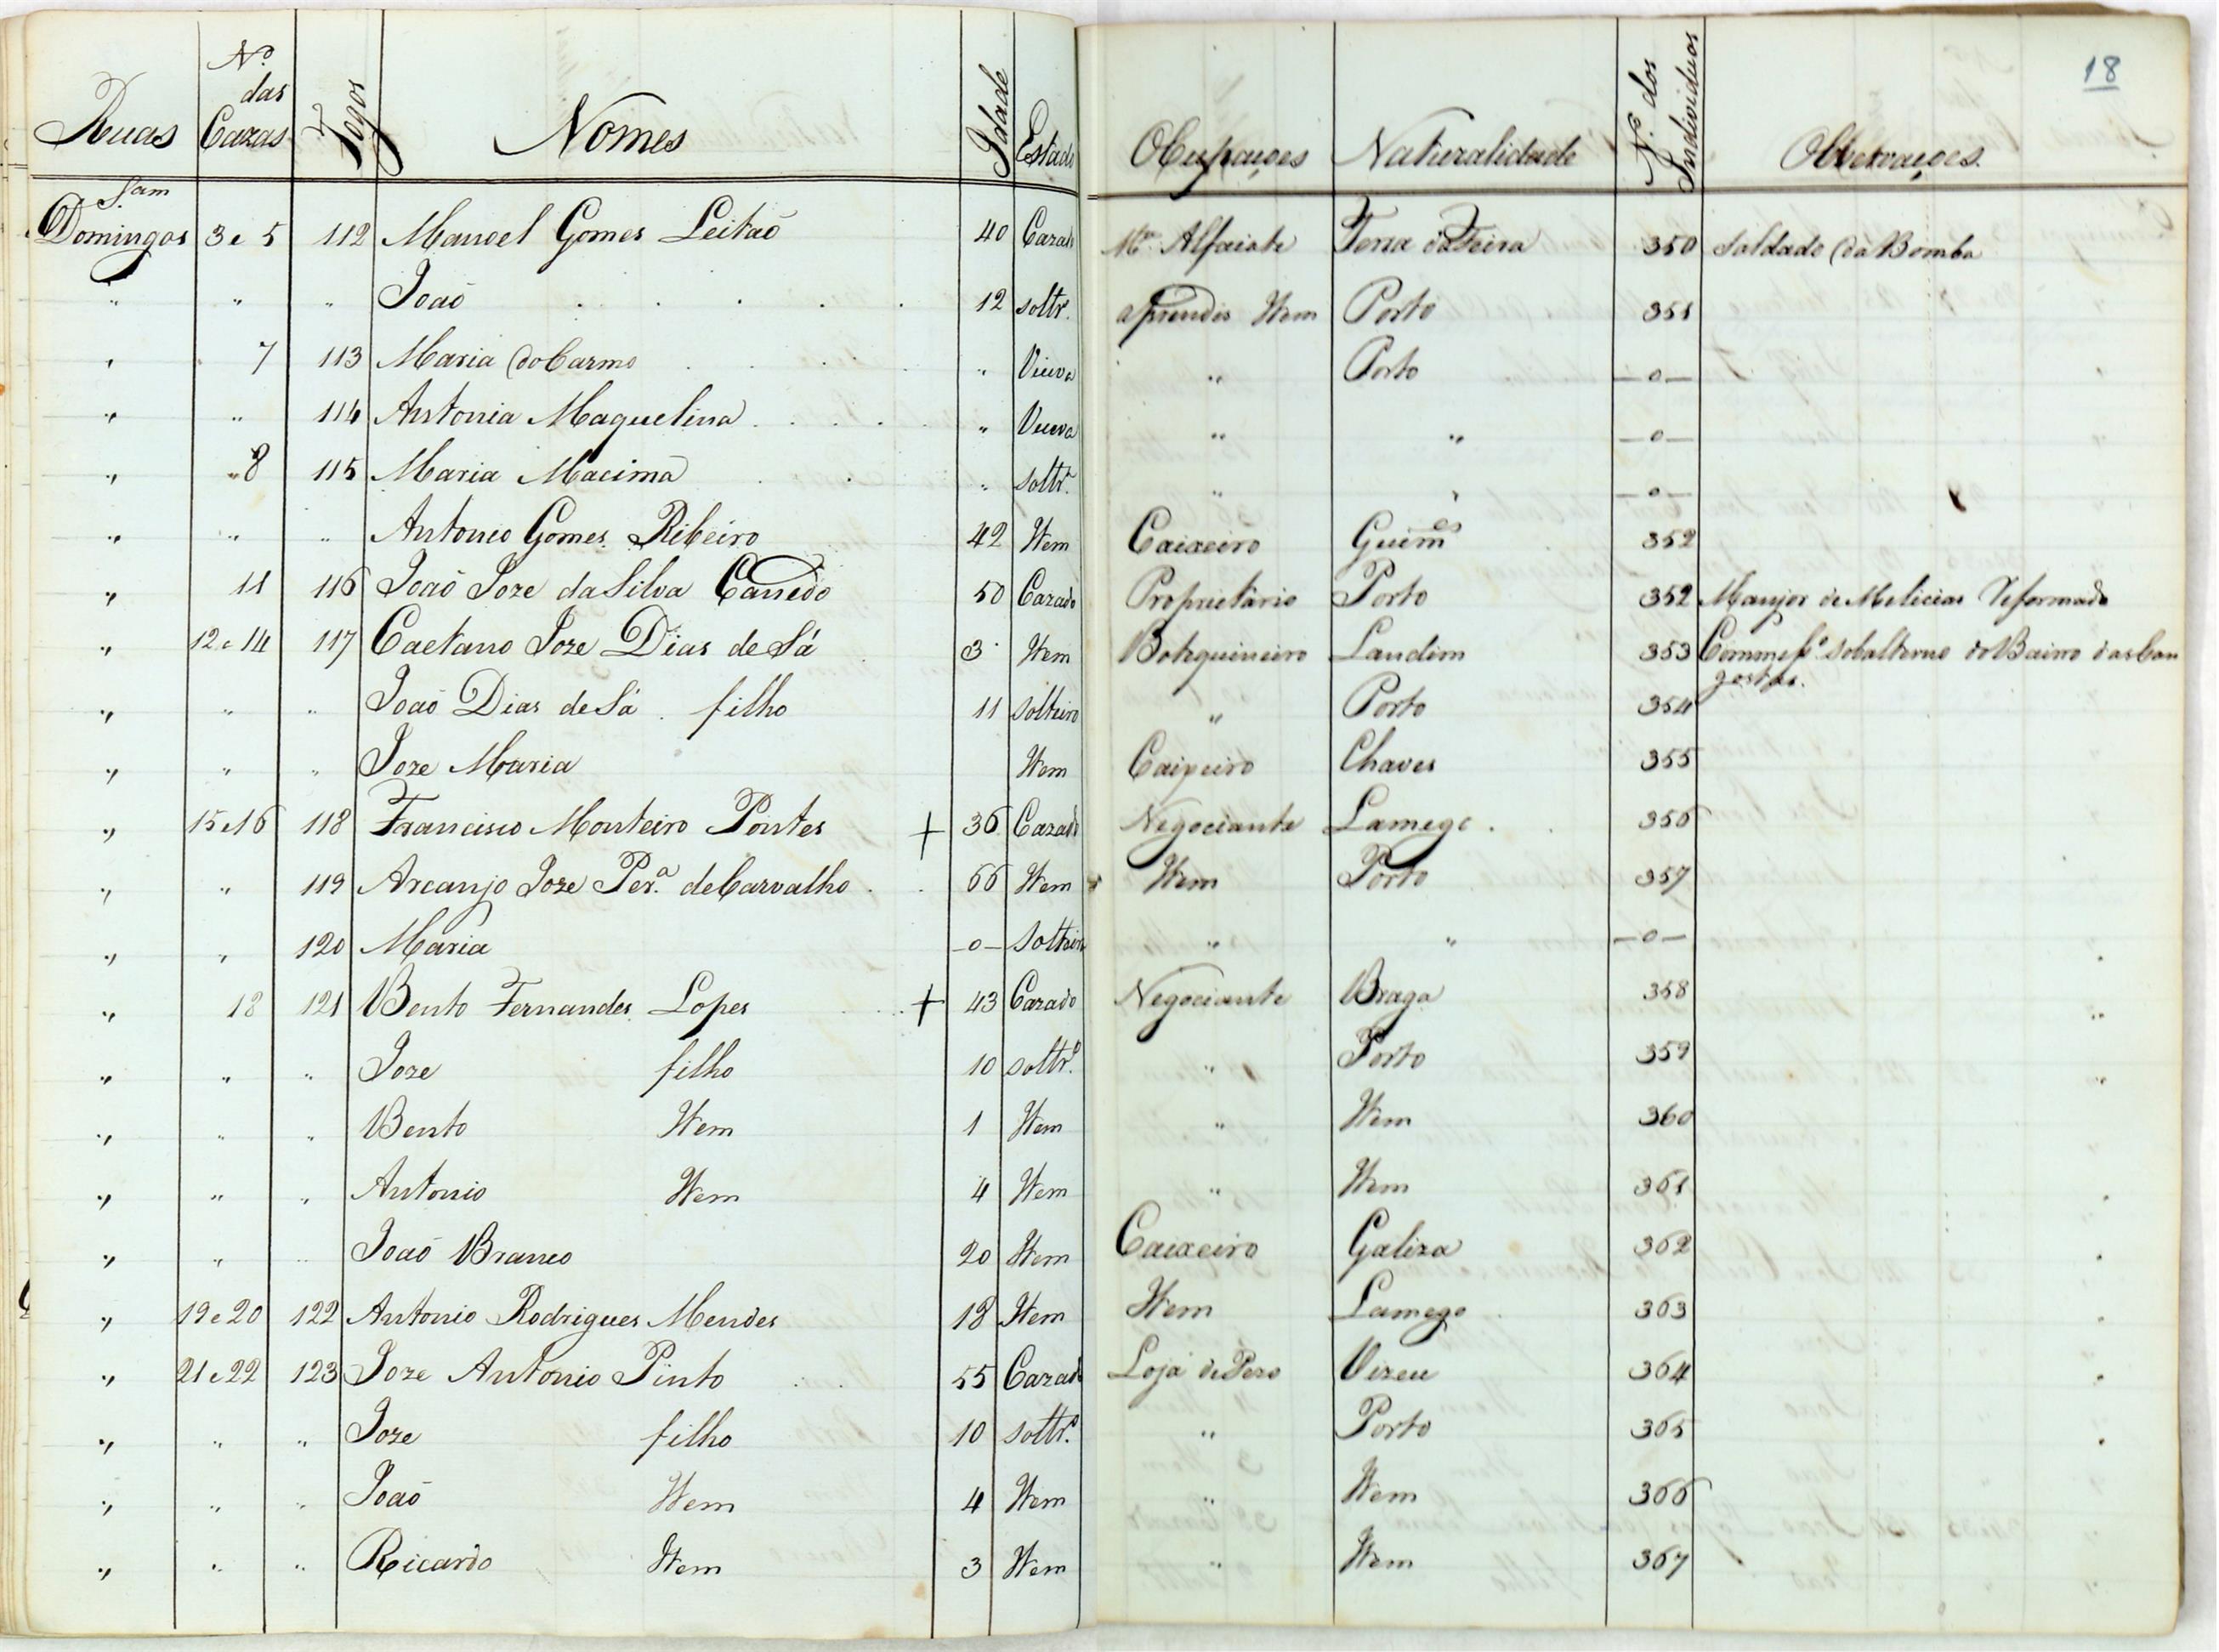 18
Ruas Nº das Cazas Fogos Nomes Idade Estado Ocupaçoes Naturalidade Nº dos Individuos Observaçoes.
Sam
Domingos 3 e 5 112 Manoel Gomes Leitaõ 40 Cazado Mte Alfaiate Terra da Feira 350 Soldado da Bomba
" " " Joaõ 12 soltrº aprendis Item Porto 351
" 7 113 Maria do Carmo " Viuva " Porto —o—
" " 114 Antonia Maquelina " Viuva " " —o—
" 8 115 Maria Macima " soltrª " " —o—
" " " Antonio Gomes Ribeiro 42 Item Caixeiro Guimes 352
" 11 116 Joaõ Joze da Silva Canedo 50 Cazado Proprietário Porto 352 Maujor de Melicias Reformado
" 12 e 14 117 Caetano Joze Dias de Sá 3 Item Botequineiro Landim 353 Commesº sobalterno do Bairro das Con
gostas.
" " " Joaõ Dias de Sá filho 11 solteiro " Porto 354
" " " Joze Maria Item Caixeiro Chaves 355
" 15 e 16 118 Francisco Monteiro Pontes + 36 Cazado Negociante Lamego 356
" " 119 Arcanjo Joze Perª de Carvalho 66 Item Item Porto 357
" " 120 Maria —o— Solteira " " —o—
" 18 121 Bento Fernandes Lopes + 43 Cazado Negociante Braga 358
" " " Joze filho 10 soltrº " Porto 359
" " " Bento Item 1 Item " Item 360
" " " Antonio Item 4 Item " Item 361
" " " Joaõ Branco 20 Item Caixeiro Galiza 362
" 19 e 20 122 Antonio Rodrigues Mendes 18 Item Item Lamego 363
" 21 e 22 123 Joze Antonio Pinto 55 Cazado Loja de Pezo Vizeu 364
" " " Joze filho 10 soltrº " Porto 365
" " " Joaõ Item 4 Item " Item 366
" " " Ricardo Item 3 Item " Item 367